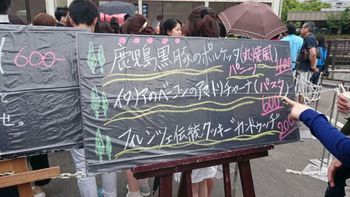 600-
と
せ。
鹿児島黒豚のポルケッタ(丸焼風)
パニーノ
イタリアのベーコンのアマトリチャーナ(パスタ)
600
フィレンツェ伝統クッキーカントゥッチ
200